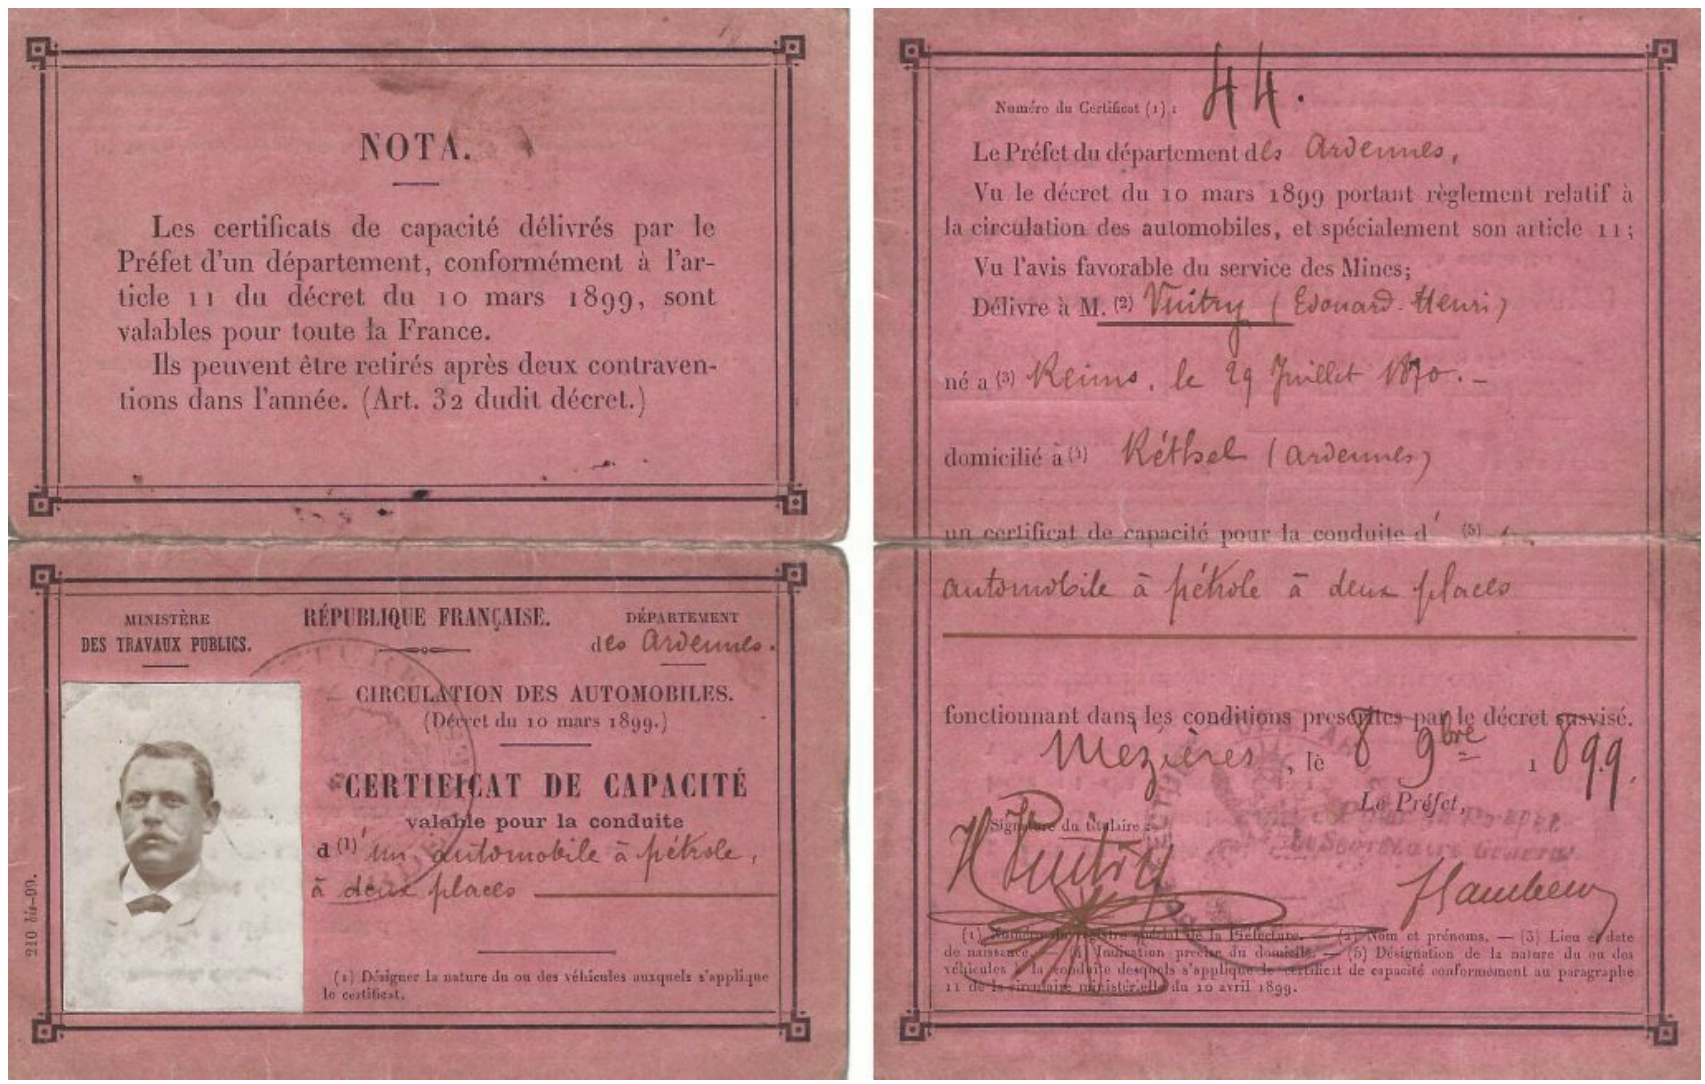 NOTA.
Les certificats de capacité délivrés par le
Préfet d'un département, conformément à l'ar-
ticle 11 du décret du 10 mars 1899, sont
valables pour toute la France.
Ils peuvent être retirés après deux contraven-
tions dans l'année. (Art. 32 dudit décret.)
MINISTÈRE
DES TRAVAUX PUBLICS.
RÉPUBLIQUE FRANÇAISE.
DÉPARTEMENT
des Ardennes.
CIRCULATION DES AUTOMOBILES.
(Décret du 10 mars 1899.)
CERTIFICAT DE CAPACITÉ
valable pour la conduite
d (1) 'un automobile à pétrole,
à deux places
210 bis-99.
(1) Désigner la nature du ou des véhicules auxquels s'applique
le certificat.
Numéro du Certificat (1) : 44.
Le Préfet du département des Ardennes,
Vu le décret du 10 mars 1899 portant règlement relatif à
la circulation des automobiles, et spécialement son article 11;
Vu l'avis favorable du service des Mines;
Délivre à M. (2) Vuitry (Edouard-Henri)
né a (3) Reims, le 29 Juillet 1870.-
domicilié à (4) Réthel (Ardennes)
un certificat de capacité pour la conduite d' (5) un
automobile à pétrole à deux places
fonctionnant dans les conditions prescrites par le décret susvisé.
Mézières, le 8 9bre 1899.
Le Préfet,
Le Secrétaire Général
Signature du titulaire :
H Vuitry
(1) Numéro du registre spécial de la Préfecture. — (2) Nom et prénoms. — (3) Lieu et date
de naissance. — (4) Indication précise du domicile. — (5) Désignation de la nature du ou des
véhicules à la conduite desquels s'applique le certificat de capacité conformément au paragraphe
11 de la circulaire ministérielle du 10 avril 1899.